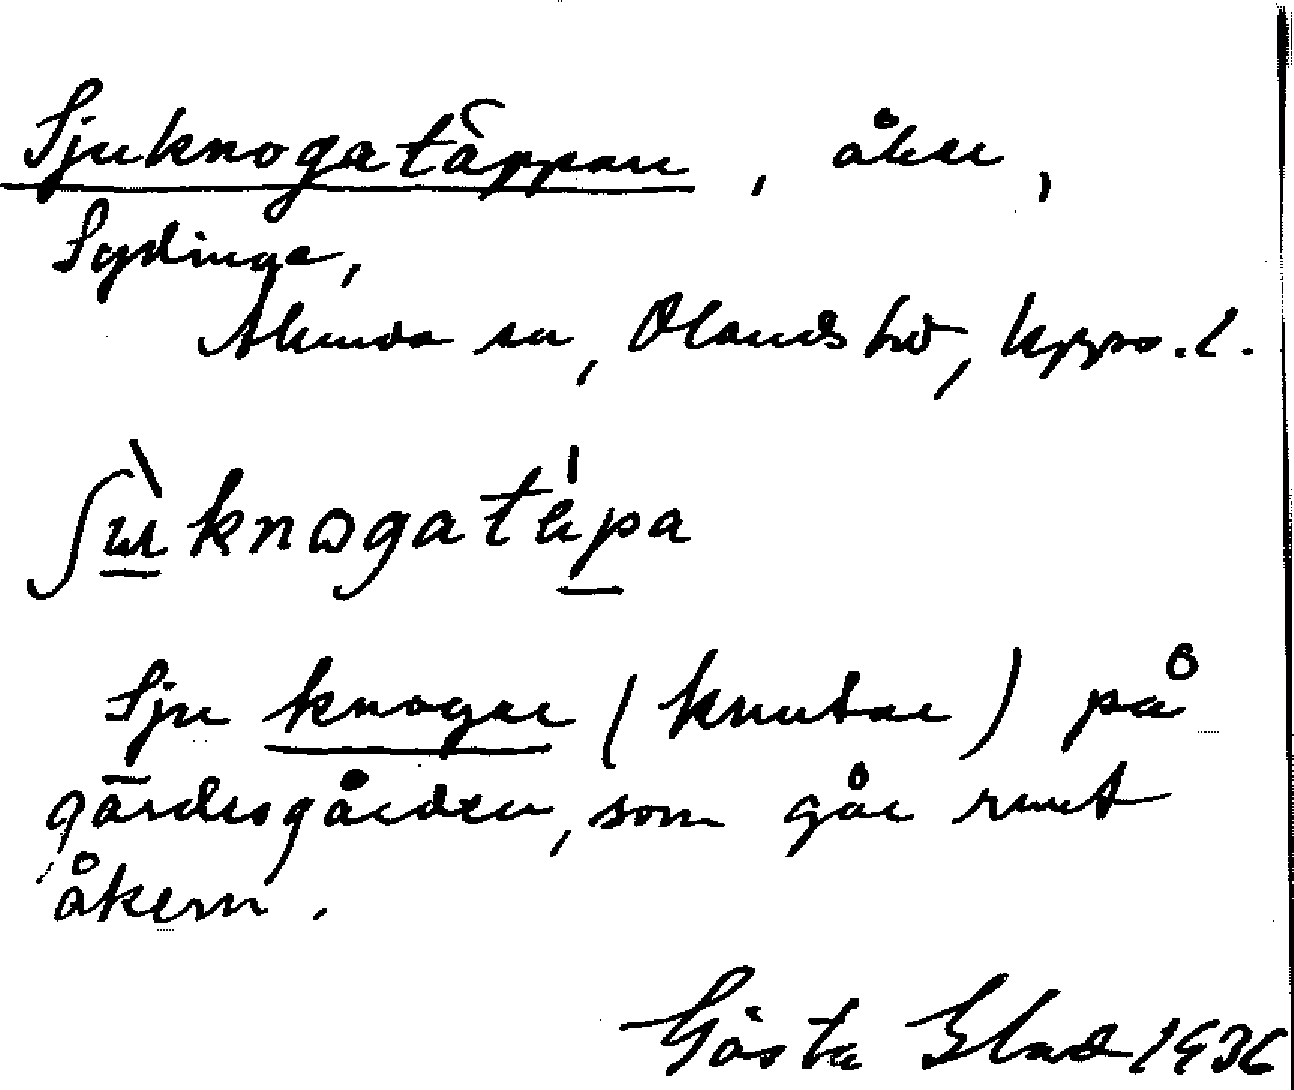 Sjuknogatäppan, åker,
Sydinge,
Alunda sn, Olands hd, Upps. l.
ʃù̲knogatɛ́p̲a
Sju knogar (knutar) på
gärdesgården, som går runt
åkern.
Gösta Blad 1936